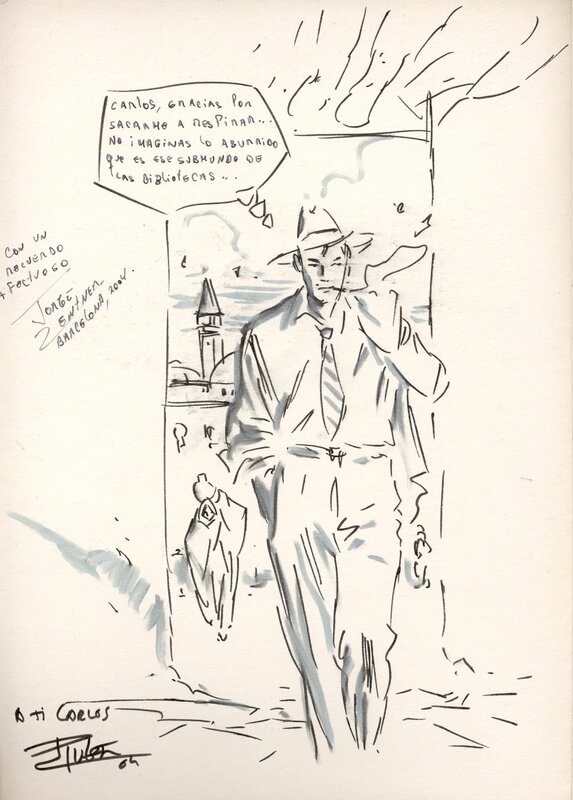 CARLOS, GRACIAS POR
SACARME A RESPIRAR...
NO IMAGINAS LO ABURRIDO
QUE ES ESE SUBMUNDO DE
LAS BIBLIOTECAS...
CON UN
RECUERDO
AFECTUOSO
JORGE
ZENTNER
BARCELONA, 2004.
A TI CARLOS
04